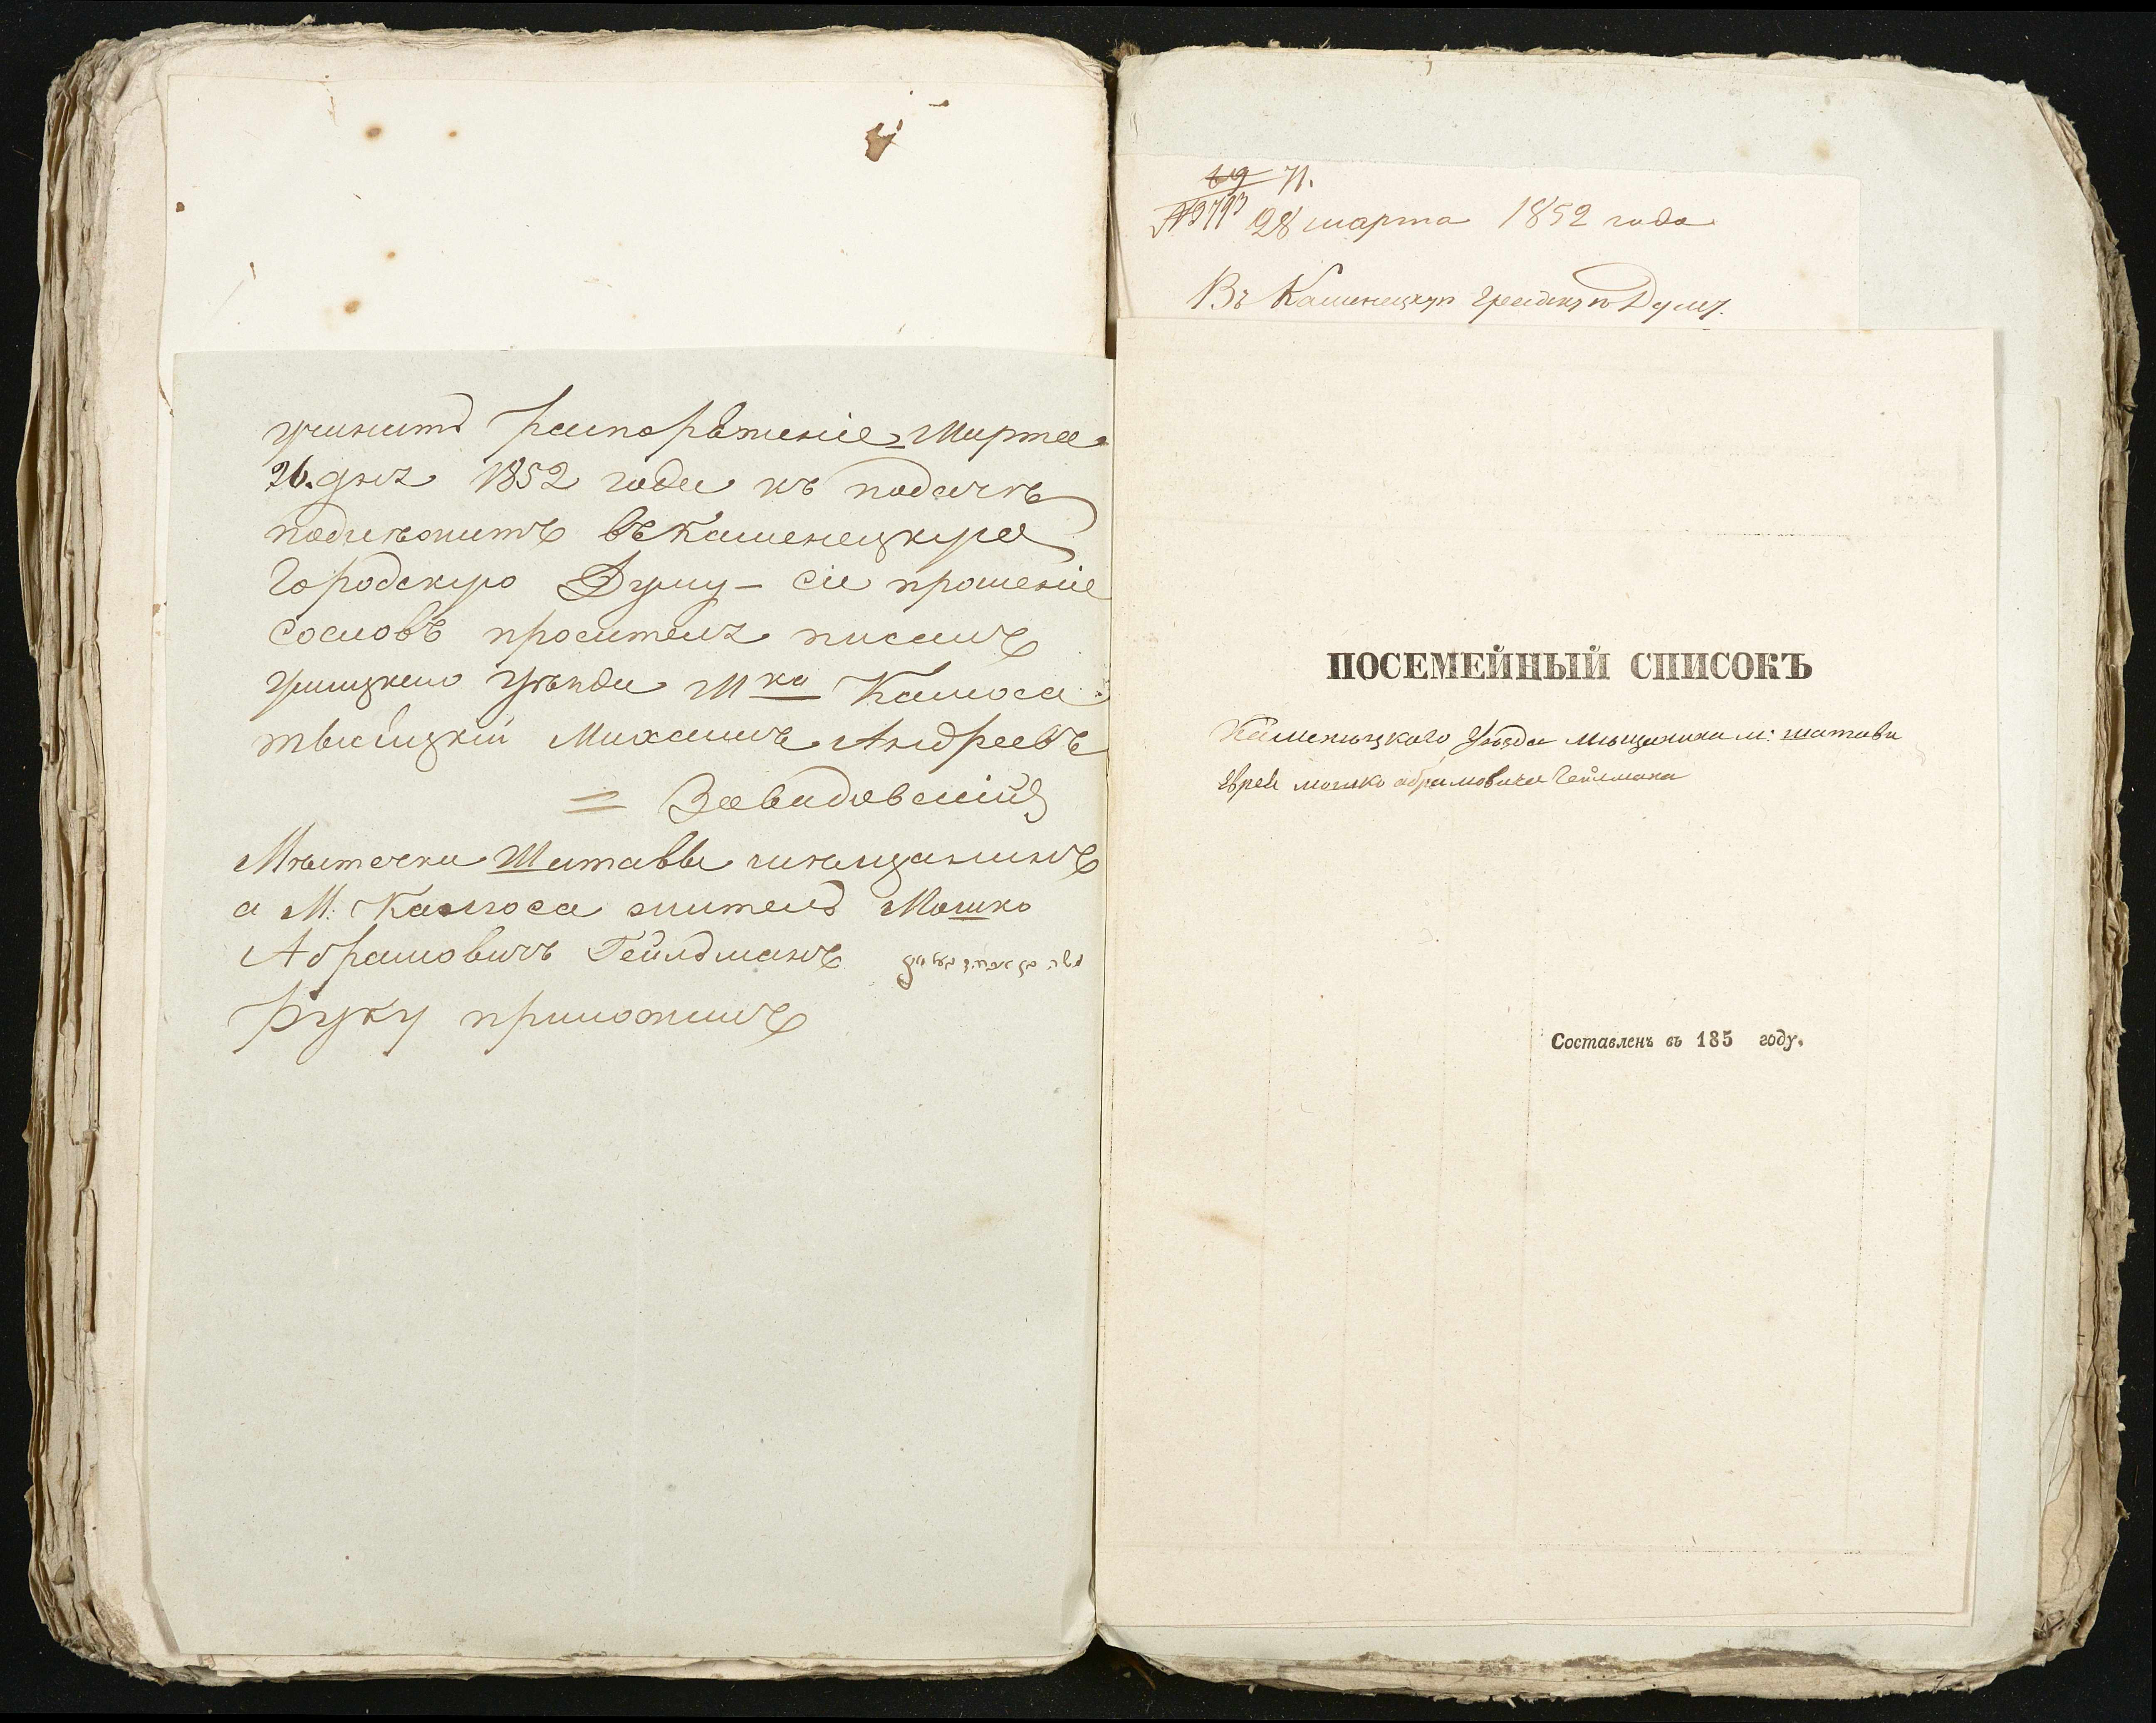 учинить распоряженіе Марта
26. дня 1852 года къ подачѣ
подлѣжитъ въ Каменецкую
Городскую Думу – сіе прошеніе
сословъ просителя писалъ
Ушицкого Уѣзда М ка Калюса
Михаилъ Андреевъ
= Завадовскій
Мѣстечка Шатавы мѣщанинъ
а М: Калюса житель Мошко
Абрамовичъ Гейльманъ
руку приложилъ
69 71.
28 марта 1852 года
Въ Каменецкую Градскую Думу.
ПОСЕМЕЙНЫЙ СПИСОКЪ
Каменѣцкого Уѣзда мѣщанина м: шатави
Еврея мошко абрамовича Гейлмана
Составленъ въ 185 году.